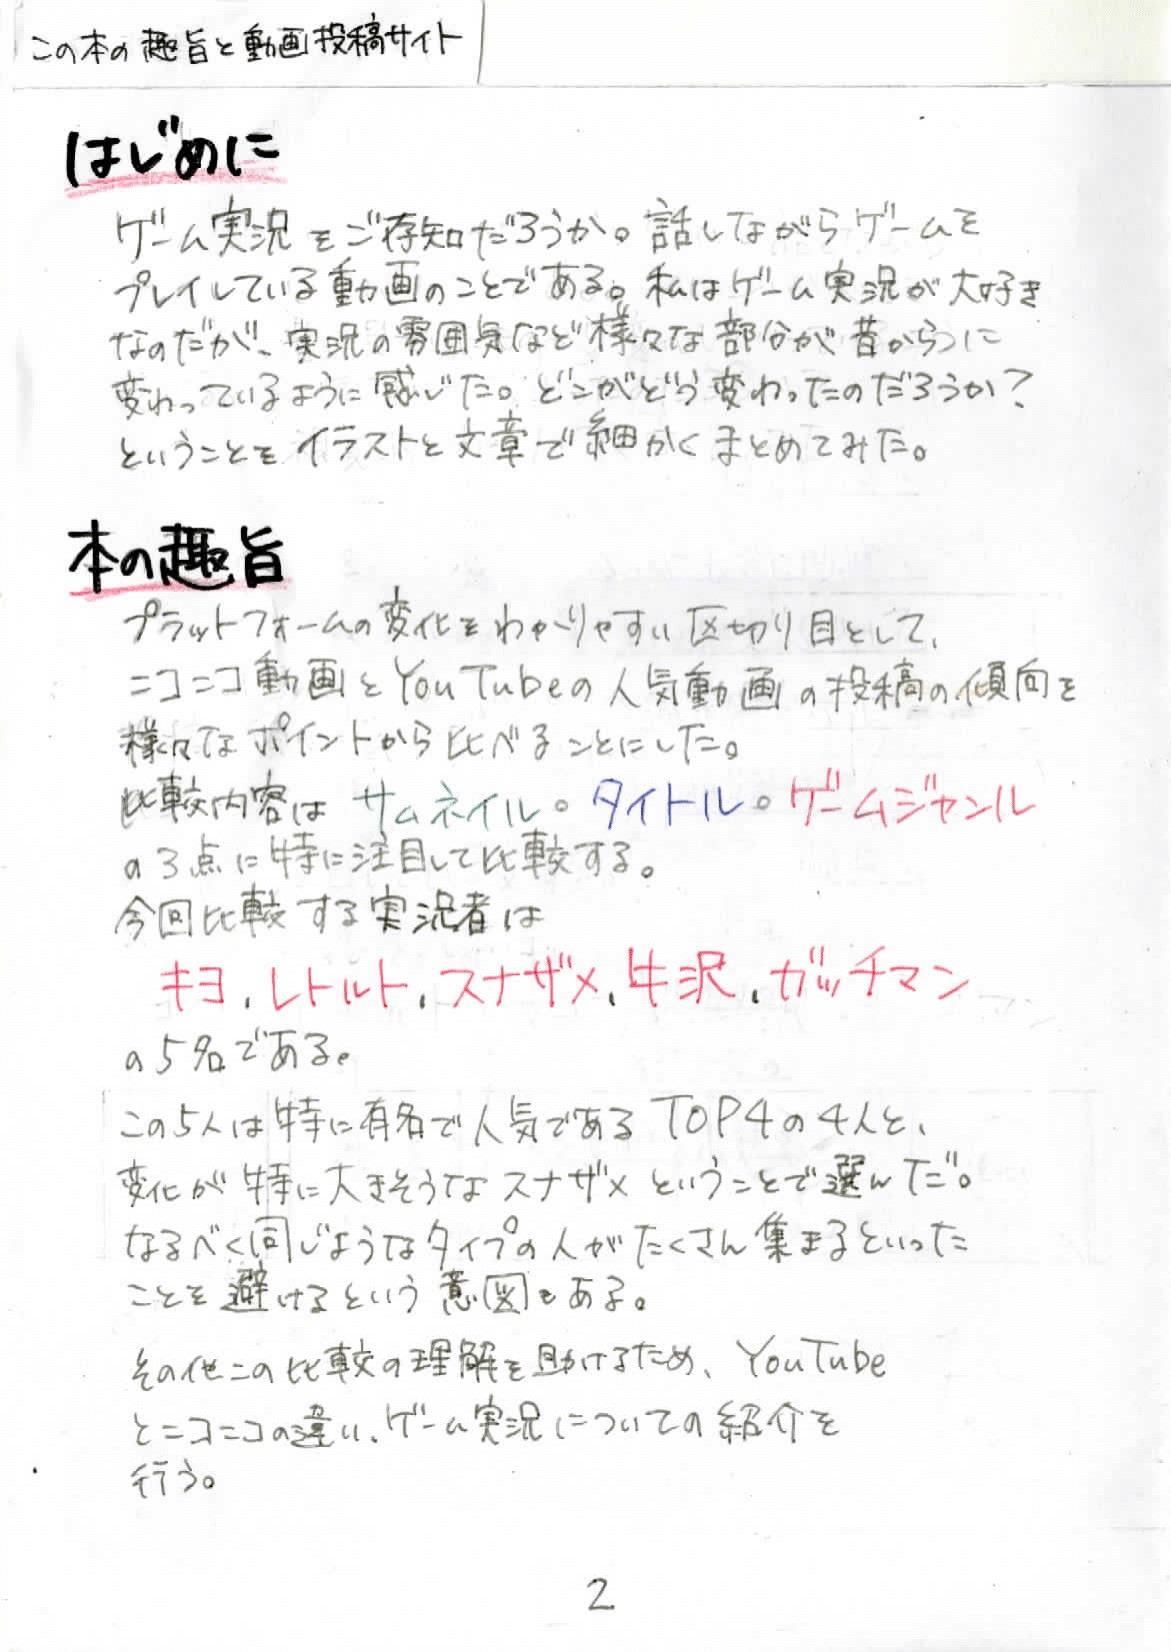 この本の趣旨と動画投稿サイト
はじめに
ゲーム実況をご存知だろうか。話しながらゲームを
プレイしている動画のことである。私はゲーム実況が大好き
なのだが、実況の雰囲気など様々な部分が昔からつに
変わっているように感じた。どこがどう変わったのだろうか?
ということをイラストと文章で細かくまとめてみた。
本の趣旨
プラットフォームの変化をわかりやすい区切り目として、
ニコニコ動画とYouTubeの人気動画の投稿の傾向を
様々なポイントから比べることにした。
比較内容はサムネイル。タイトル。ゲームジャンル
の3点に特に注目して比較する。
今回比較する実況者は
キヨ、レトルト、スナザメ、牛沢、ガッチマン
の5名である。
この5人は特に有名で人気であるTOP4の4人と、
変化が特に大きそうなスナザメということで選んだ。
なるべく同じようなタイプの人がたくさん集まるといった
ことを避けるという意図もある。
その他この比較の理解を助けるため、YouTube
とニコニコの違い、ゲーム実況についての紹介を
行う。
2